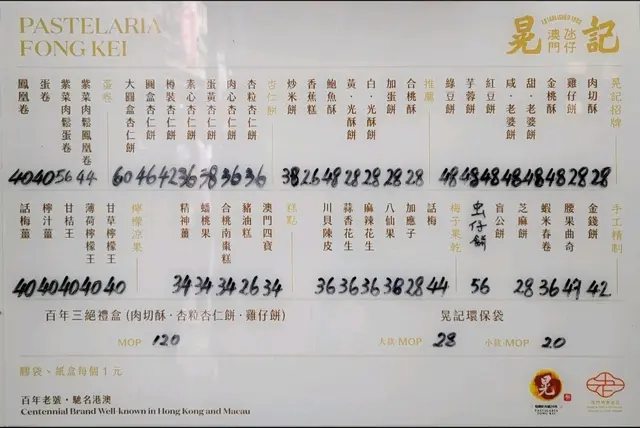 PASTELARIA
FONG KEI
晃記
澳門氹仔
晃記招牌
肉切酥 28
雞仔餅 28
金桃酥 48
甜·老婆餅 48
咸·老婆餅 48
紅豆餅 48
芋蓉餅 48
綠豆餅 48
推薦
合桃酥 28
加蛋酥 28
白·光酥餅 28
黃·光酥餅 28
鮑魚酥 48
香蕉糕 26
炒米餅 38
杏仁餅
杏粒杏仁餅 36
肉心杏仁餅 36
蛋黃杏仁餅 38
素心杏仁餅 36
樽裝杏仁餅 42
圓盒杏仁餅 46
大圓盒杏仁餅 60
蛋卷
紫菜肉鬆鳳凰卷 44
紫菜肉鬆蛋卷 56
蛋卷 40
鳳凰卷 40
手工精制
金錢餅 42
腰果曲奇 47
蝦米春卷 36
芝麻餅 28
盲公餅
虫仔餅 56
梅子果乾
話梅 44
加應子 28
八仙果 38
麻辣花生 36
蒜香花生 36
川貝陳皮 36
糕點
澳門四寶 34
豬油糕 26
合桃南棗糕 34
蟠桃果 34
精神薑 34
檸檬涼果
甘草檸檬王 40
薄荷檸檬王 40
甘桔王 40
檸汁薑 40
話梅薑 40
百年三絕禮盒 (肉切酥·杏粒杏仁餅·雞仔餅)
MOP 120
晃記環保袋
大袋·MOP 28 小袋·MOP 20
膠袋、紙盒每個1元
百年老號·馳名港澳
Centennial Brand Well-known in Hong Kong and Macau
晃
PASTELARIA
FONG KEI